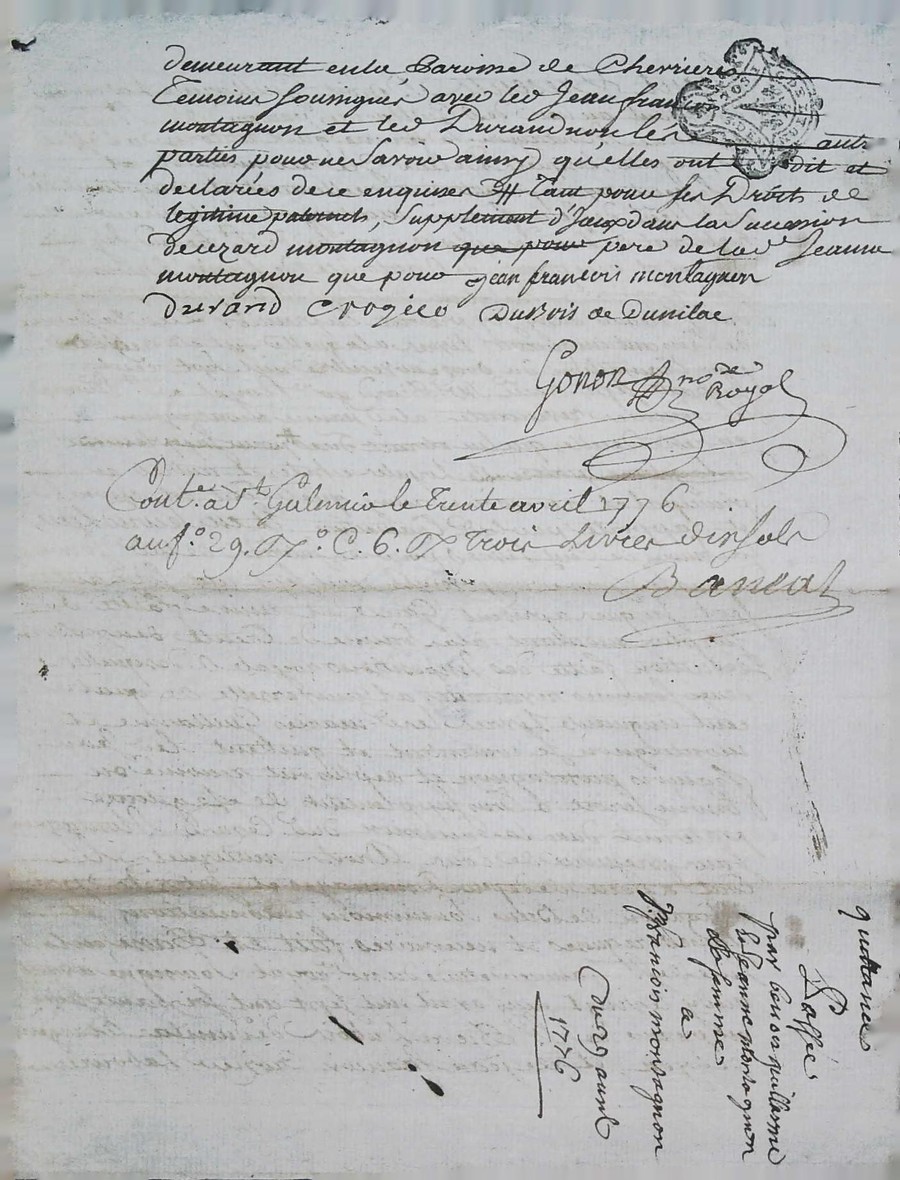 demeurant en la Paroisse de Chevrieres
Temoins soussignés avec led Jean françois
montagnon et led Durand non les autr
parties pour ne savoir ainsy qu'elles ont dit et
declarées de ce enquises tant pour ses Droits de
legitime paternels, supplement d'Iceux dans la Succession
de montagnon que pour pere de lad.e Jeanne
montagnon que pour jean francois montagnon
durand crozier DuBois de Dunilac
Gonon no.re Royal
Cont.é a S.t Galmier le trente avril 1776
au f.o 29. V.o C. 6. R trois Livres dix sols
quittance
Passée
par benois guillaume
& Jeanne montagnon
sa femme
a
J. francois montagnon
du 29 avril
1776